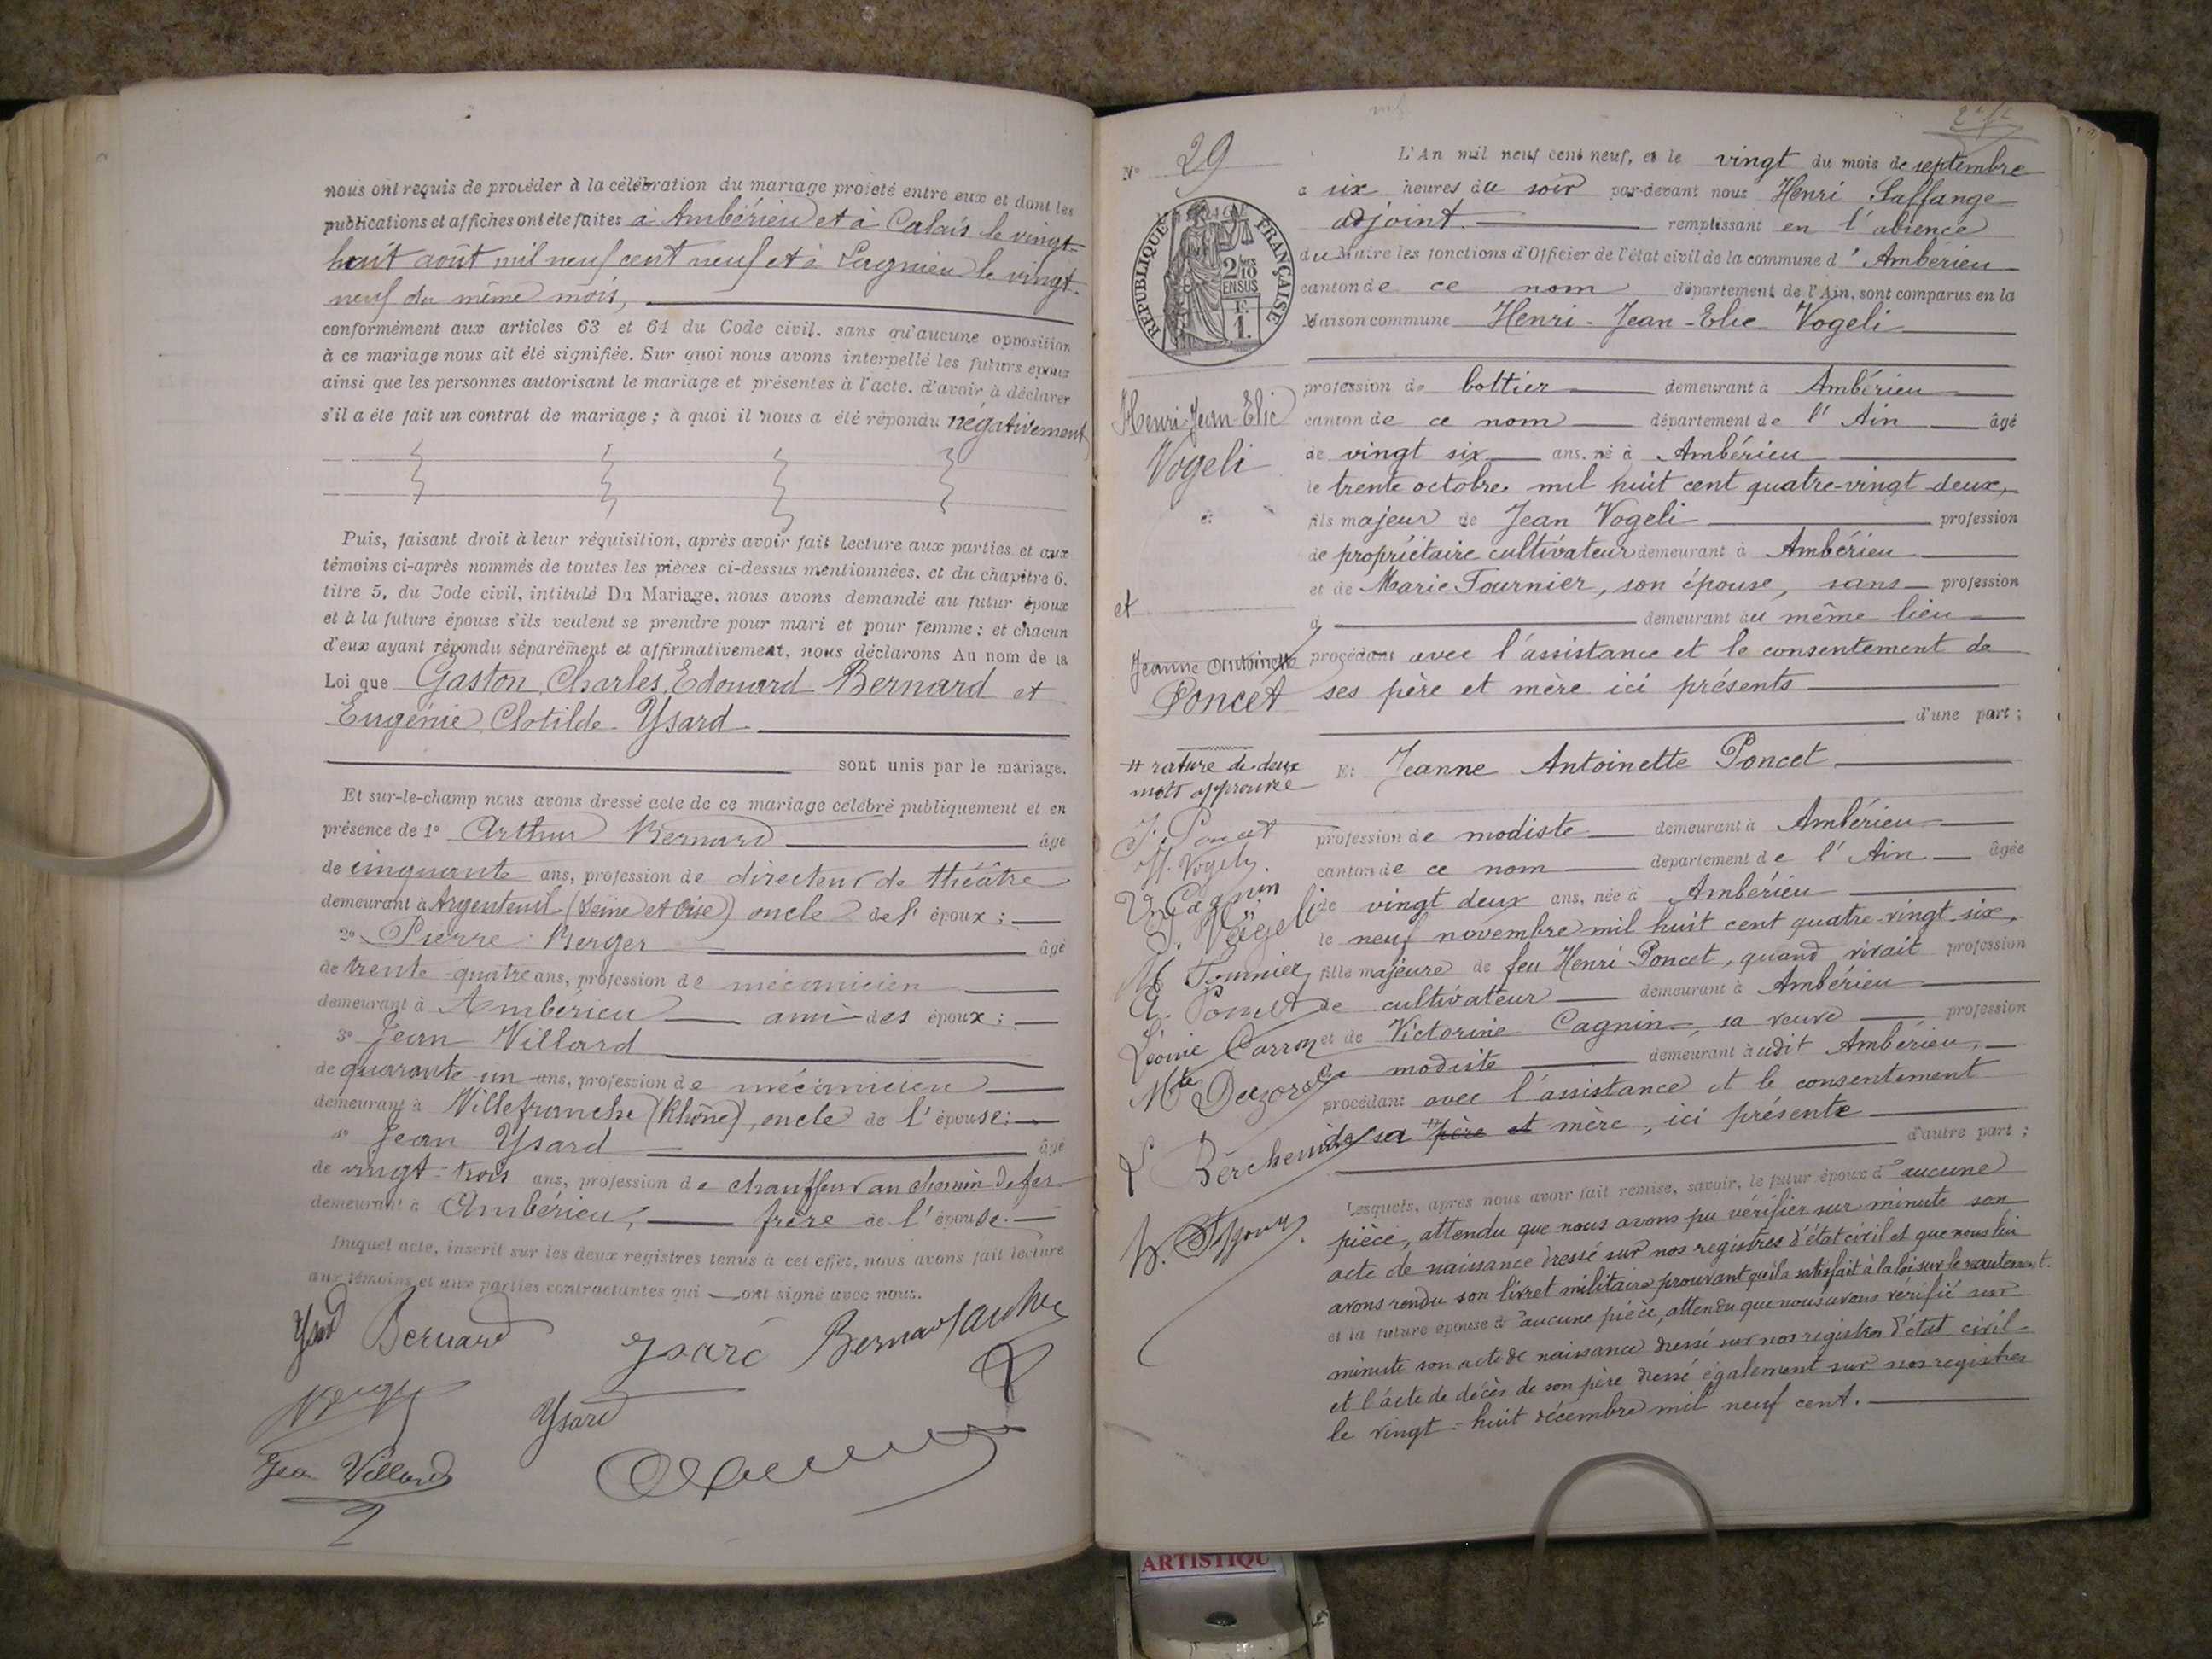 nous ont requis de procéder à la célébration du mariage projeté entre eux et dont les
publications et affiches ont été faites à Ambérieu et à Calais le vingt-
huit août mil neuf cent neuf et à Lagnieu le vingt-
neuf du même mois,
conformément aux articles 63 et 64 du Code civil, sans qu'aucune opposition
à ce mariage nous ait été signifiée. Sur quoi nous avons interpellé les futurs époux
ainsi que les personnes autorisant le mariage et présentes à l'acte, d'avoir à déclarer
s'il a été fait un contrat de mariage ; à quoi il nous a été répondu négativement
Puis, faisant droit à leur réquisition, après avoir fait lecture aux parties et aux
témoins ci-après nommés de toutes les pièces ci-dessus mentionnées, et du chapitre 6,
titre 5, du Code civil, intitulé Du Mariage, nous avons demandé au futur époux
et à la future épouse s'ils veulent se prendre pour mari et pour femme ; et chacun
d'eux ayant répondu séparément et affirmativement, nous déclarons Au nom de la
Loi que Gaston, Charles, Edouard Bernard et
Eugénie, Clotilde Ysard
sont unis par le mariage.
Et sur-le-champ nous avons dressé acte de ce mariage célébré publiquement et en
présence de 1° Arthur Bernard âgé
de cinquante ans, profession de directeur de théâtre
demeurant à Argenteuil (Seine et Oise) oncle de l'époux ;
2° Pierre Berger âgé
de trente-quatre ans, profession de mécanicien
demeurant à Ambérieu ami des époux ;
3° Jean Villard
de quarante-un ans, profession de mécanicien
demeurant à Villefranche (Rhône), oncle de l'épouse ;
4° Jean Ysard âgé
de vingt-trois ans, profession de chauffeur au chemin de fer
demeurant à Ambérieu, frère de l'épouse.
Duquel acte, inscrit sur les deux registres tenus à cet effet, nous avons fait lecture
aux témoins et aux parties contractantes qui ont signé avec nous.
Ysard Bernard Ysard Bernard Arthur
Ysard
Jean Villard
N° 29
L'An mil neuf cent neuf, et le vingt du mois de septembre
à six heures du soir par-devant nous Henri Laffange
adjoint. remplissant en l'absence
du Maire les fonctions d'Officier de l'état civil de la commune d'Ambérieu
canton de ce nom département de l'Ain, sont comparus en la
Maison commune Henri-Jean-Elie Vogeli
RÉPUBLIQUE FRANÇAISE
2/10 EN SUS
F.
1.
profession de bottier demeurant à Ambérieu
canton de ce nom département de l'Ain âgé
de vingt six ans, né à Ambérieu
le trente octobre mil huit cent quatre-vingt-deux,
fils majeur de Jean Vogeli profession
de propriétaire cultivateur demeurant à Ambérieu
et de Marie Tournier, son épouse, sans profession
d demeurant au même lieu
procédant avec l'assistance et le consentement de
ses père et mère ici présents
d'une part ;
Et Jeanne Antoinette Poncet
profession de modiste demeurant à Ambérieu
canton de ce nom département de l'Ain âgée
de vingt deux ans, née à Ambérieu
le neuf novembre mil huit cent quatre-vingt-six,
fille majeure de feu Henri Poncet, quand vivait profession
de cultivateur demeurant à Ambérieu
et de Victorine Cagnin, sa veuve profession
de modiste demeurant audit Ambérieu,
procédant avec l'assistance et le consentement
de sa # père et mère, ici présente
d'autre part ;
Lesquels, après nous avoir fait remise, savoir, le futur époux d'aucune
pièce, attendu que nous avons pu vérifier sur minute son
acte de naissance dressé sur nos registres d'état civil et que nous lui
avons rendu son livret militaire prouvant qu'il a satisfait à la loi sur le recrutement.
et la future épouse d'aucune pièce, attendu que nous avons vérifié sur
minute son acte de naissance dressé sur nos registres d'état civil
et l'acte de décès de son père dressé également sur nos registres
le vingt-huit décembre mil neuf cent.
Henri-Jean-Elie
Vogeli
et
Jeanne Antoinette
Poncet
# rature de deux
mots approuvée
J. Poncet
H. Vogeli
V. Cagnin
J. Vogeli
M Tournier
A. Poncet
Léonie Carron
L
ARTISTIQU